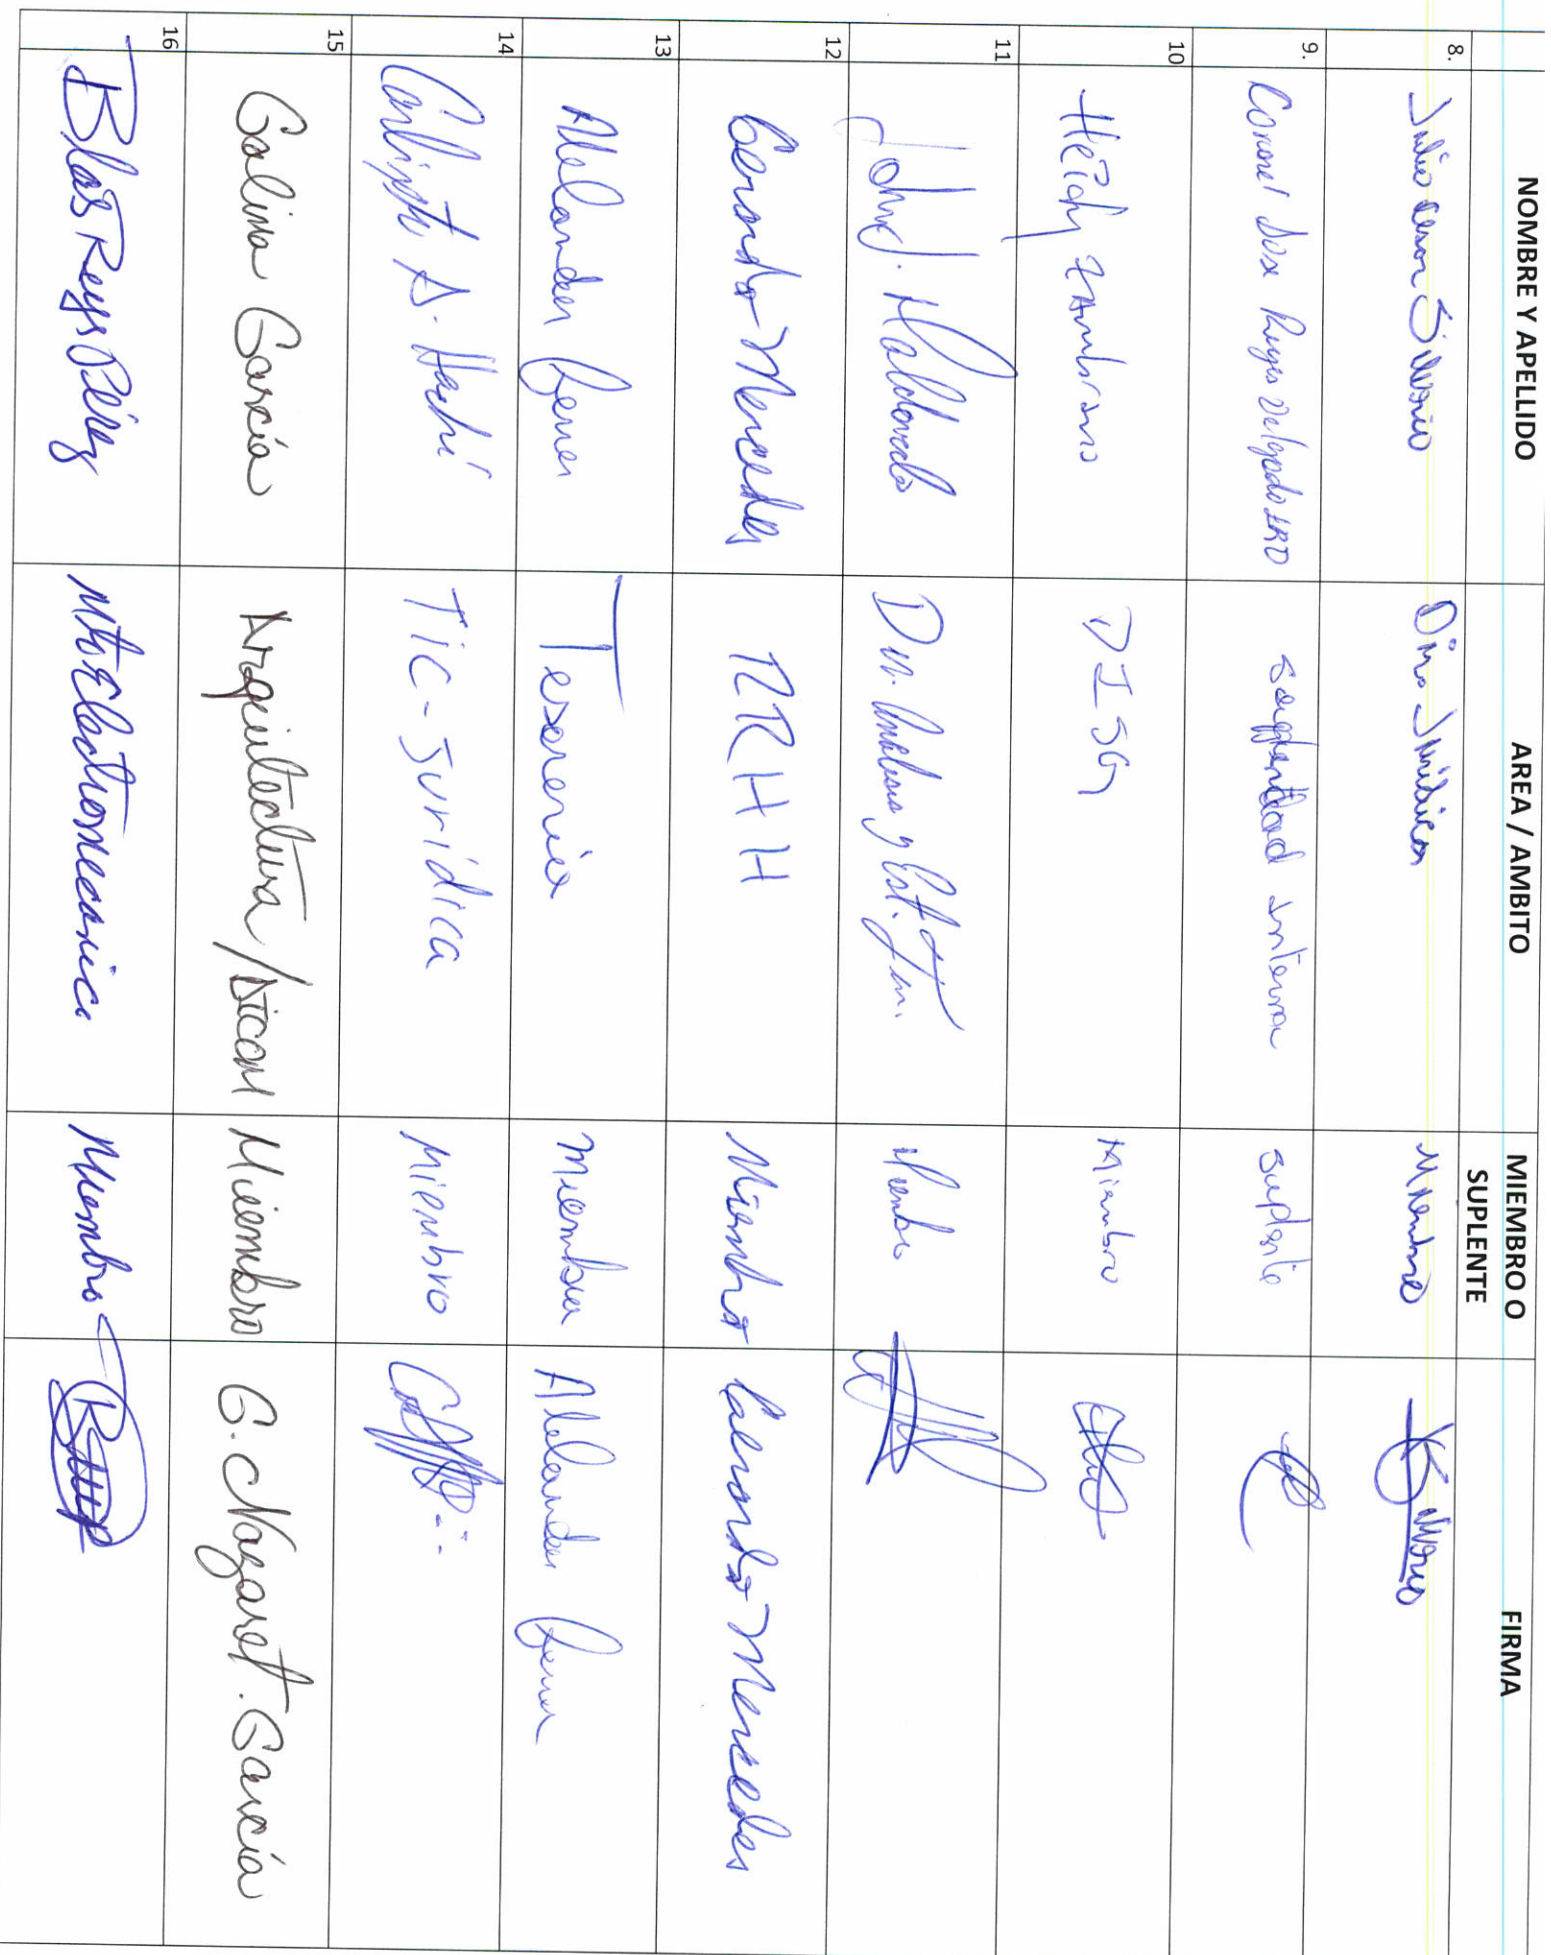 NOMBRE Y APELLIDO AREA / AMBITO MIEMBRO O SUPLENTE FIRMA
8. Julio Cesar Silverio Dirc. Juridica Miembro
9. Coronel Jose Reyes Delgado ERD seguridad interna suplente
10 Heidy Zambrano DISG Miembro
11 J. Maldonado Dir. y Est. Fin. Miembro
12 Gerardo Mercedes RRHH Miembro Gerardo Mercedes
13 Alelander Ferrer Tesoreria Miembro Alelander Ferrer
14 Calixto A. Haché Tic - Jurídica Miembro
15 Galina García Arquitectura / Dicom Miembro G. Nazaret. García
16 Blas Reyes Pérez Mto Electromecanica Miembro